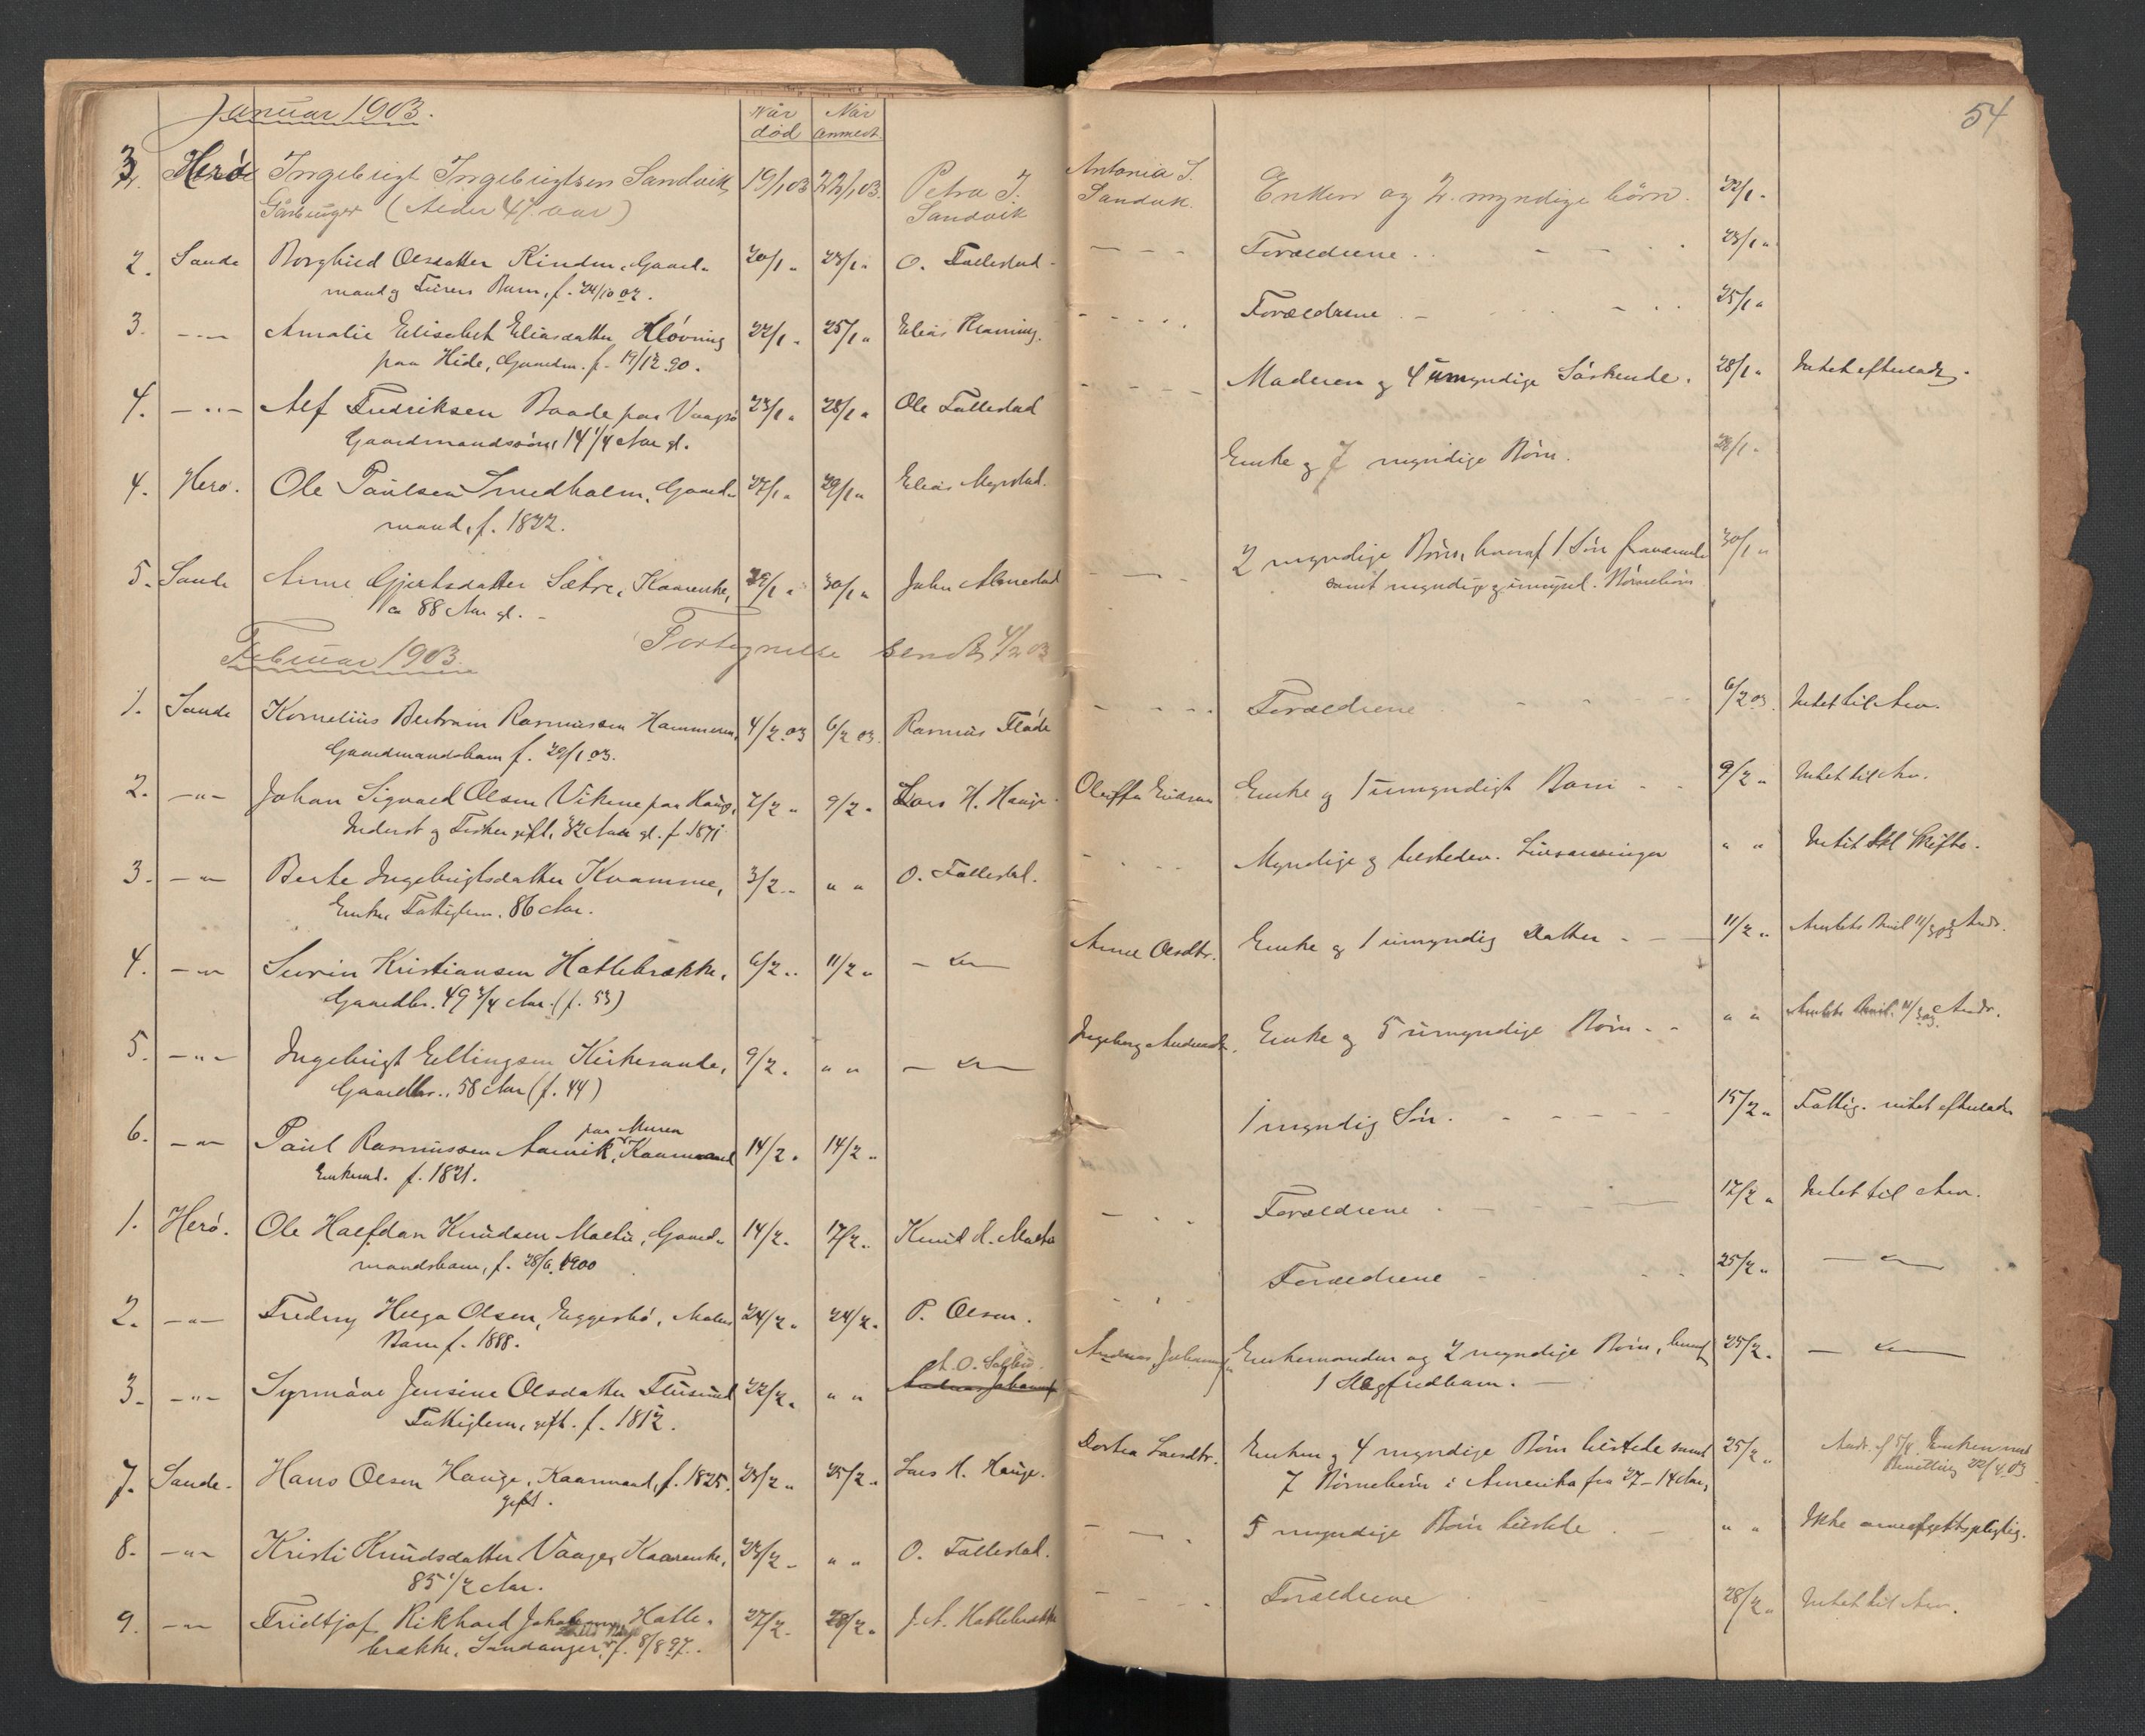 Januar 1903.
Når død
Når anmeldt
54
3. Herø Ingebrigt Ingebrigtsen Sandvik 19/1 03 22/1 03. Petra I. Sandvik
Gårdbruger (Alder 47 aar)
Antonia I. Sandvik. Enken og 2 myndige børn. 22/1 -
2. Sande Borghild Olsdatter Kindn, Gaard- 20/1 " 23/1 " O. Tallestad
mand og Barn, f. 24/10 02.
Forældrene. 23/1 "
3. -"- Amalie Elisabet Eliasdatter Kløvning 22/1 " 25/1 " Elias Kløvning.
paa Hide, Gaardm. f. 19/12 90.
Forældrene 25/1 "
4. -"- Alf Fredriksen Baade paa Vaagsø 23/1 " 28/1 " Ole Tallestad
Gaardmandssøn, 14 1/4 Aar gl.
Moderen og 4 umyndige Søskende. 28/1 " Intet efterladt.
4. Herø. Ole Paulsen Smedholm, Gaard- 27/1 " 29/1 " Elias Myrstad.
mand, f. 1822.
Enke og 7 myndige Børn. 29/1 "
5. Sande Anne Gjertsdatter Sætre, Kaarenke, 29/1 " 30/1 " John Almestad
ca 88 Aar gl. -
2 myndige Børn, hvoraf 1 Søn fraværende 30/1 "
samt myndige og umynd. Børnebørn
Februar 1903. Fortegnelse sendt 4/2 03
1. Sande Kornelius Bertram Rasmussen Hammeren, 4/2 03 6/2 03. Rasmus Flåde
Gaardmandsbarn f. 29/1 03.
Forældrene 6/2 03. Intet til Arv.
2. -"- Johan Sigvard Olsen Vikene paa Haug, 7/2 " 9/2 " Lars H. Hauge.
Inderst og Fisker gift, 32 Aar gl. f. 1871
Enke og 1 umyndigt Barn 9/2 " Intet til Arv.
3. -"- Berte Ingebrigtsdatter Kvamme, 3/2 " " " O. Tallestad.
Enke Fattiglem. 86 Aar.
Myndige og tilstedev. Livsarvinger " " Intet til Skifte.
4. -"- Severin Kristiansen Hattebrække, 6/2 " 11/2 " -"-
Gaardbr. 49 3/4 Aar. (f. 53)
Anne Olsdtr. Enke og 1 umyndig Datter 11/2 "
5. -"- Ingebrigt Ellingsen Kirkesande, 9/2 " " " -"-
Gaardbr., 58 Aar (f. 44)
Ingeborg Andersdtr. Enke og 5 umyndige Børn " "
6. -"- Paul Rasmussen Aarvik, paa Muren Kaarmand 14/2 " 14/2 "
Enkemd. f. 1821.
1 myndig Søn. 15/2 " Fattig. intet efterladt
1. Herø. Ole Halfdan Knudsen Moltu, Gaard- 14/2 " 17/2 " Knud A. Moltu
mandsbarn, f. 28/6 1900
Forældrene 17/2 " Intet til Arv.
2. -"- Fredny Helga Olsen, Eggesbø, 24/2 " 24/2 " P. Olsen.
Barn f. 1888.
Forældrene 25/2 " -"-
3. -"- Jensine Olsdatter Flusund 22/2 " " " A. O.
Fattiglem, gift. f. 1812.
Enkemanden og 2 myndige Børn, hvoraf 25/2 " -"-
1 Slegfredbarn. -
7. Sande. Hans Olsen Hauge, Kaarmand, f. 1825. 23/2 " 25/2 " Lars H. Hauge.
gift.
Dortea Larsdtr. Enken og 4 myndige Børn tilstede samt 25/2 "
7 Børnebørn i Amerika fra 27 - 14 Aar,
8. -"- Kristi Knudsdatter Vaage, Kaarenke, 23/2 " " " O. Tallestad.
85 1/2 Aar.
5 myndige Børn tilstede " " Ikke arveafgiftspligtig.
9. -"- Fridtjof Rikhard Hatle- 27/2 " 28/2 " J. A. Hatlebrække
brække, Sandanger, f. 8/8 97.
Forældrene 28/2 " Intet til Arv.